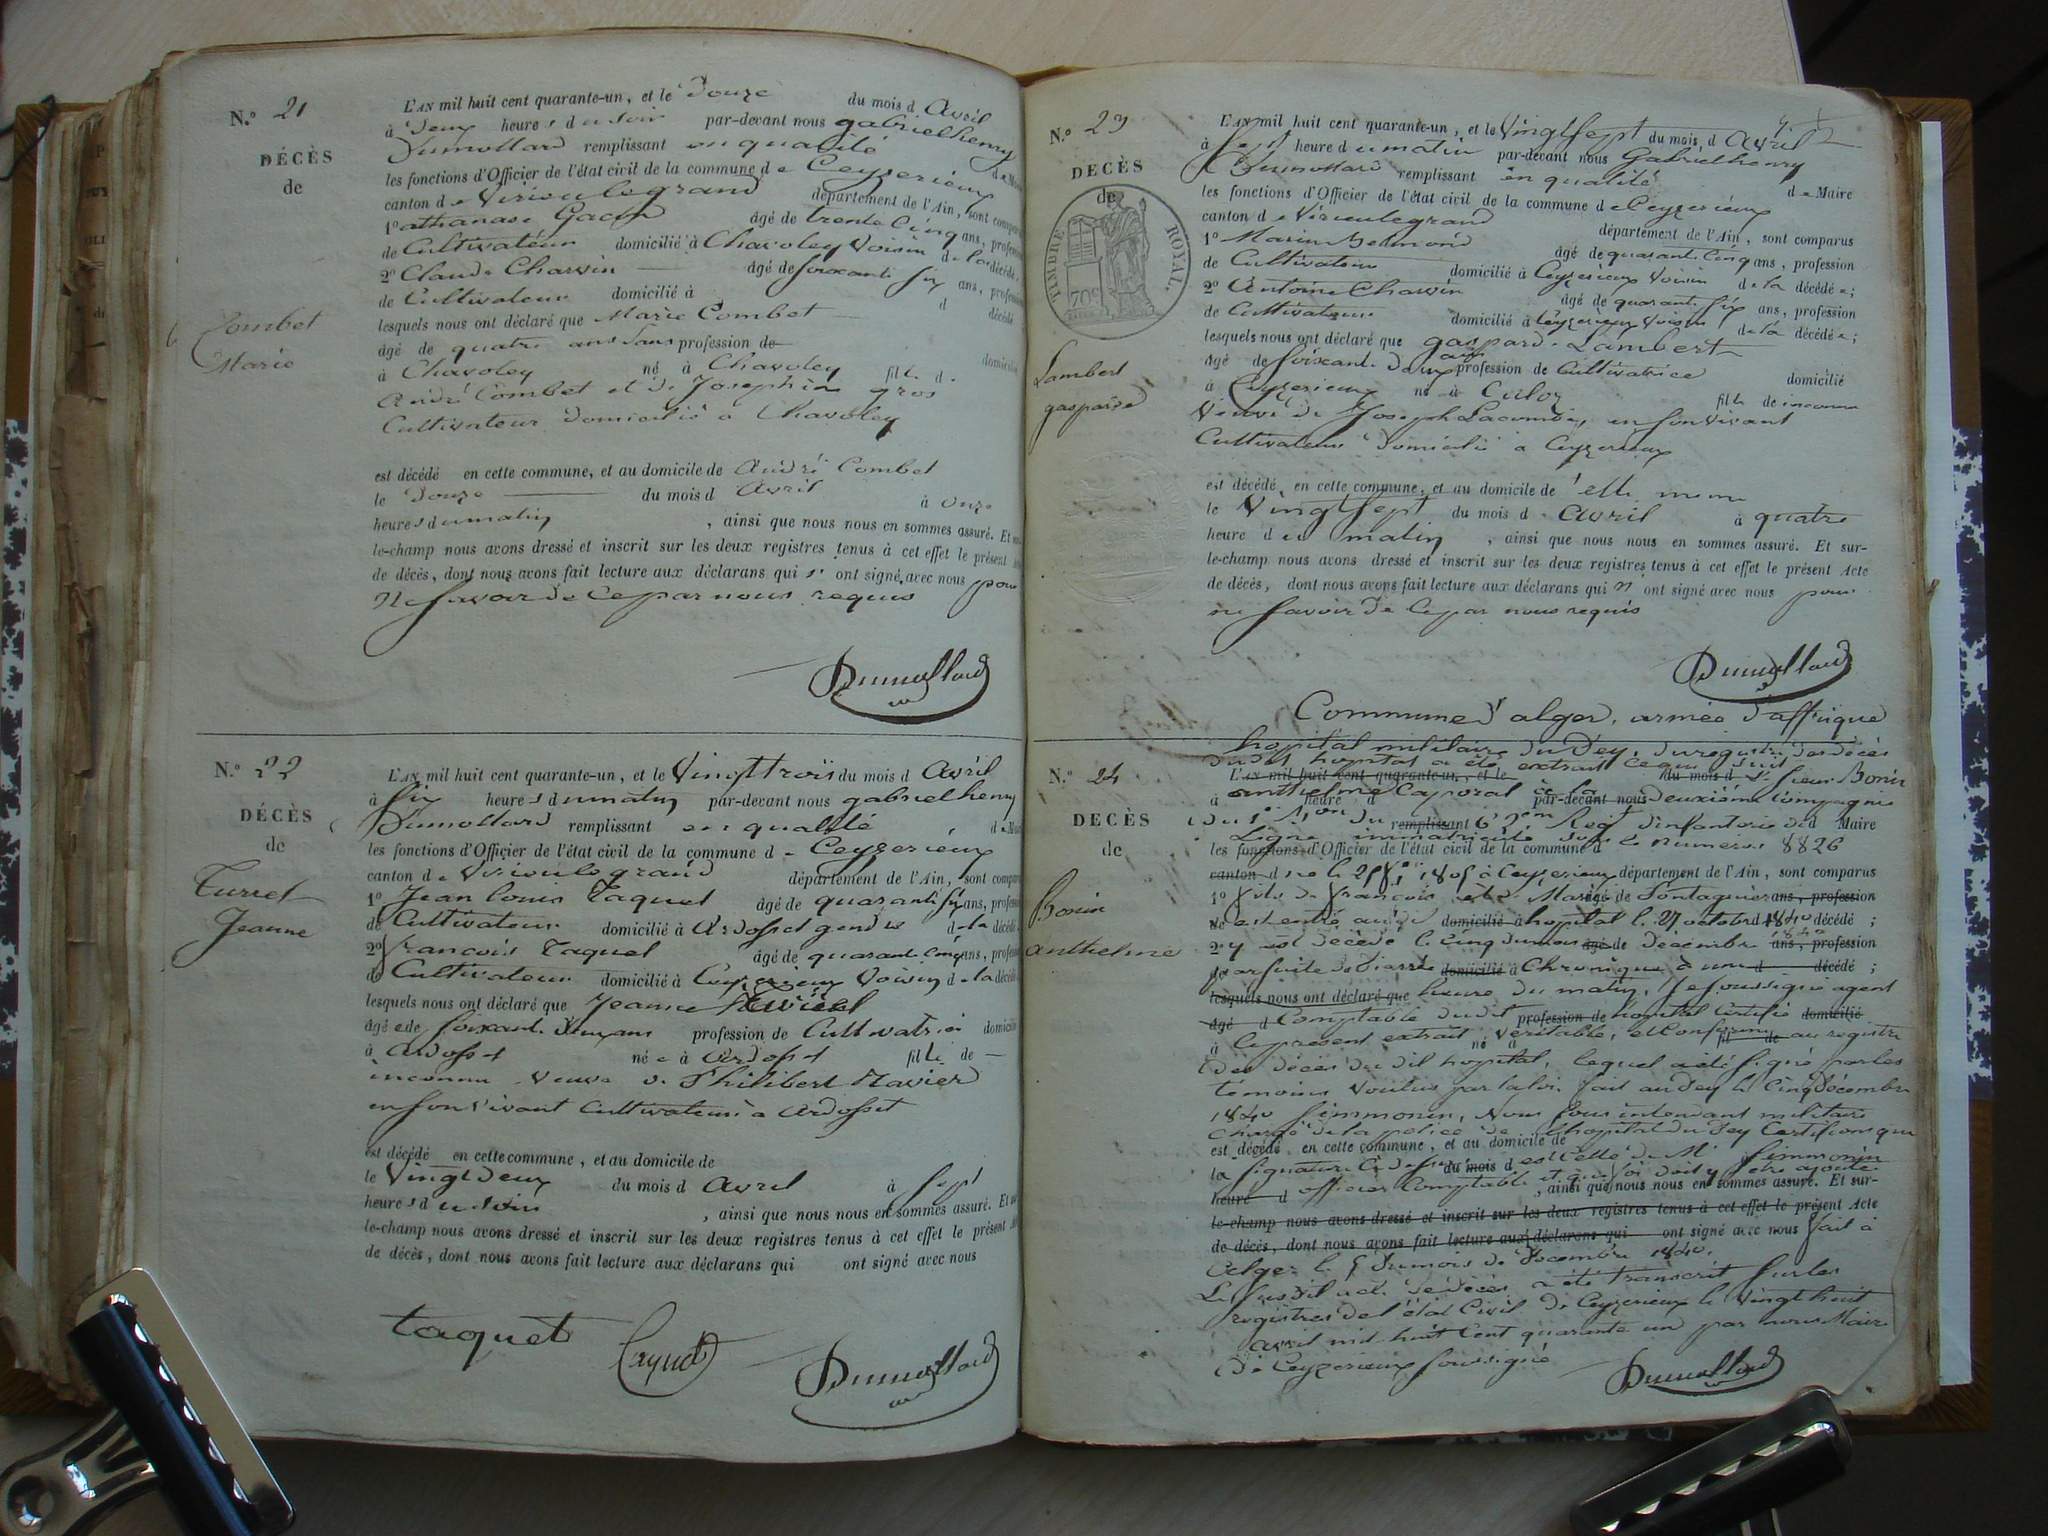 N.º 21
DÉCÈS
de
Combet
Marie
L'AN mil huit cent quarante-un, et le Douze du mois d Avril
à Deux heures du soir par-devant nous gabriel henry
Dumollard remplissant en qualité de Maire
les fonctions d'Officier de l'état civil de la commune de Ceyzerieux
canton de Virieu le grand département de l'Ain, sont comparus
1º athanase Gacon âgé de trente Cinq ans, profession
de Cultivateur domicilié à Chavoley Voisin de la décédée
2º Claude Charvin âgé de soixante six ans, profession
de Cultivateur domicilié à d décédé
lesquels nous ont déclaré que Marie Combet
âgé de quatre ans sans profession de domicilié
à Chavoley né à Chavoley fille de
André Combet et de Josephine gros
Cultivateur Domicilié à Chavoley
est décédé en cette commune, et au domicile de André Combet
le Douze du mois d Avril à onze
heures du matin, ainsi que nous nous en sommes assuré. Et sur-
le-champ nous avons dressé et inscrit sur les deux registres tenus à cet effet le présent Acte
de décès, dont nous avons fait lecture aux déclarans qui n' ont signé avec nous pour
Ne savoir de Ce par nous requis
Dumollard
N.º 22
DÉCÈS
de
Turrel
Jeanne
L'AN mil huit cent quarante-un, et le Vingt trois du mois d Avril
à six heures du matin par-devant nous gabriel henry
Dumollard remplissant en qualité de Maire
les fonctions d'Officier de l'état civil de la commune d Ceyzerieux
canton de Virieu le grand département de l'Ain, sont comparus
1º Jean Louis Taquet âgé de quarante six ans, profession
de Cultivateur domicilié à Ardosset gendre de la décédée
2º françois Taquet âgé de quarante Cinq ans, profession
de Cultivateur domicilié à Ceyzerieux Voisin de la décédée
lesquels nous ont déclaré que Jeanne
âgée de soixante Deux ans profession de Cultivatrice domicilié
à Ardosset née à Ardosset fille de
inconnu Veuve de Philibert Navier
en son Vivant Cultivateur à Ardosset
est décédé en cette commune, et au domicile de
le Vingt Deux du mois d Avril à sept
heures du soir, ainsi que nous nous en sommes assuré. Et sur-
le-champ nous avons dressé et inscrit sur les deux registres tenus à cet effet le présent Acte
de décès, dont nous avons fait lecture aux déclarans qui ont signé avec nous
taquet Taquet Dumollard
N.º 23
DÉCÈS
de
TIMBRE ROYAL
70c
Lambert
gasparde
L'AN mil huit cent quarante-un, et le Vingt sept du mois d Avril
à sept heure du matin par-devant nous Gabriel henry
Dumollard remplissant en qualité de Maire
les fonctions d'Officier de l'état civil de la commune de Ceyzerieux
canton de Virieu le grand département de l'Ain, sont comparus
1º Marin âgé de quarante Cinq ans, profession
de Cultivateur domicilié à Ceyzerieux Voisin de la décédée;
2º Antoine Charvin âgé de quarante six ans, profession
de Cultivateur domicilié à Ceyzerieux Voisin de la décédée;
lesquels nous ont déclaré que gasparde Lambert
âgé de soixante Deux ans profession de Cultivatrice domicilié
à Ceyzerieux né à Culoz fille de inconnu
Veuve de Joseph Lacombe, en son Vivant
Cultivateur Domicilié à Ceyzerieux
est décédé en cette commune, et au domicile de elle même
le Vingt sept du mois d Avril à quatre
heure du matin, ainsi que nous nous en sommes assuré. Et sur-
le-champ nous avons dressé et inscrit sur les deux registres tenus à cet effet le présent Acte
de décès, dont nous avons fait lecture aux déclarans qui n' ont signé avec nous pour
ne savoir de Ce par nous requis
Dumollard
Commune d'alger, armée d'affrique
hopital militaire du Dey, du registre des décès
dudit hopital a été extrait ce qui suit
N.º 24
DÉCÈS
de
Bonin
Anthelme
L'AN mil huit cent quarante-un, et le du mois d Sr. sieur Bonin
anthelme Caporal à la par-devant nous Deuxième Compagnie
du 1er Bon du remplissant 62eme Regt d'infanterie de Maire
Ligne immatriculé sous le numero 8826
les fonctions d'Officier de l'état civil de la commune d
canton d né le à Ceyzerieux département de l'Ain, sont comparus
1º fils de françois et de Marie âgé de ans, profession
de est entré audit domicilié à hopital le 27 octobre 1840 décédé;
2º y est décédé le Cinq du mois âgé de Decembre 1840 ans, profession
de par suite de Diarrée domicilié à Chronique à une d décédé;
lesquels nous ont déclaré que heure du matin, Je soussigné agent
âgé d Comptable dudit profession de hopital Certifie domicilié
à le présent extrait né à Veritable, et Conforme fil de au registre
des décès du dit hopital, lequel a été signé par les
témoins Voulus par la loi fait au Dey le Cinq Décembre
1840 Simmonin, Nous sous intendant militaire
Chargé de la police de l'hopital du Dey Certifions que
est décédé en cette commune, et au domicile de
la signature Ci dessus du mois d est Celle de M. Simmonin
heure d officier Comptable et que foi doit y être ajoutée
, ainsi que nous nous en sommes assuré. Et sur-
le-champ nous avons dressé et inscrit sur les deux registres tenus à cet effet le présent Acte
de décès, dont nous avons fait lecture aux déclarans qui ont signé avec nous fait à
Alger le 5 du mois de Decembre 1840.
Le susdit acte de décès a été transcrit sur les
registres de l'état Civil de Ceyzerieux le Vingt huit
avril mil huit Cent quarante un par nous Maire
de Ceyzerieux soussigné
Dumollard